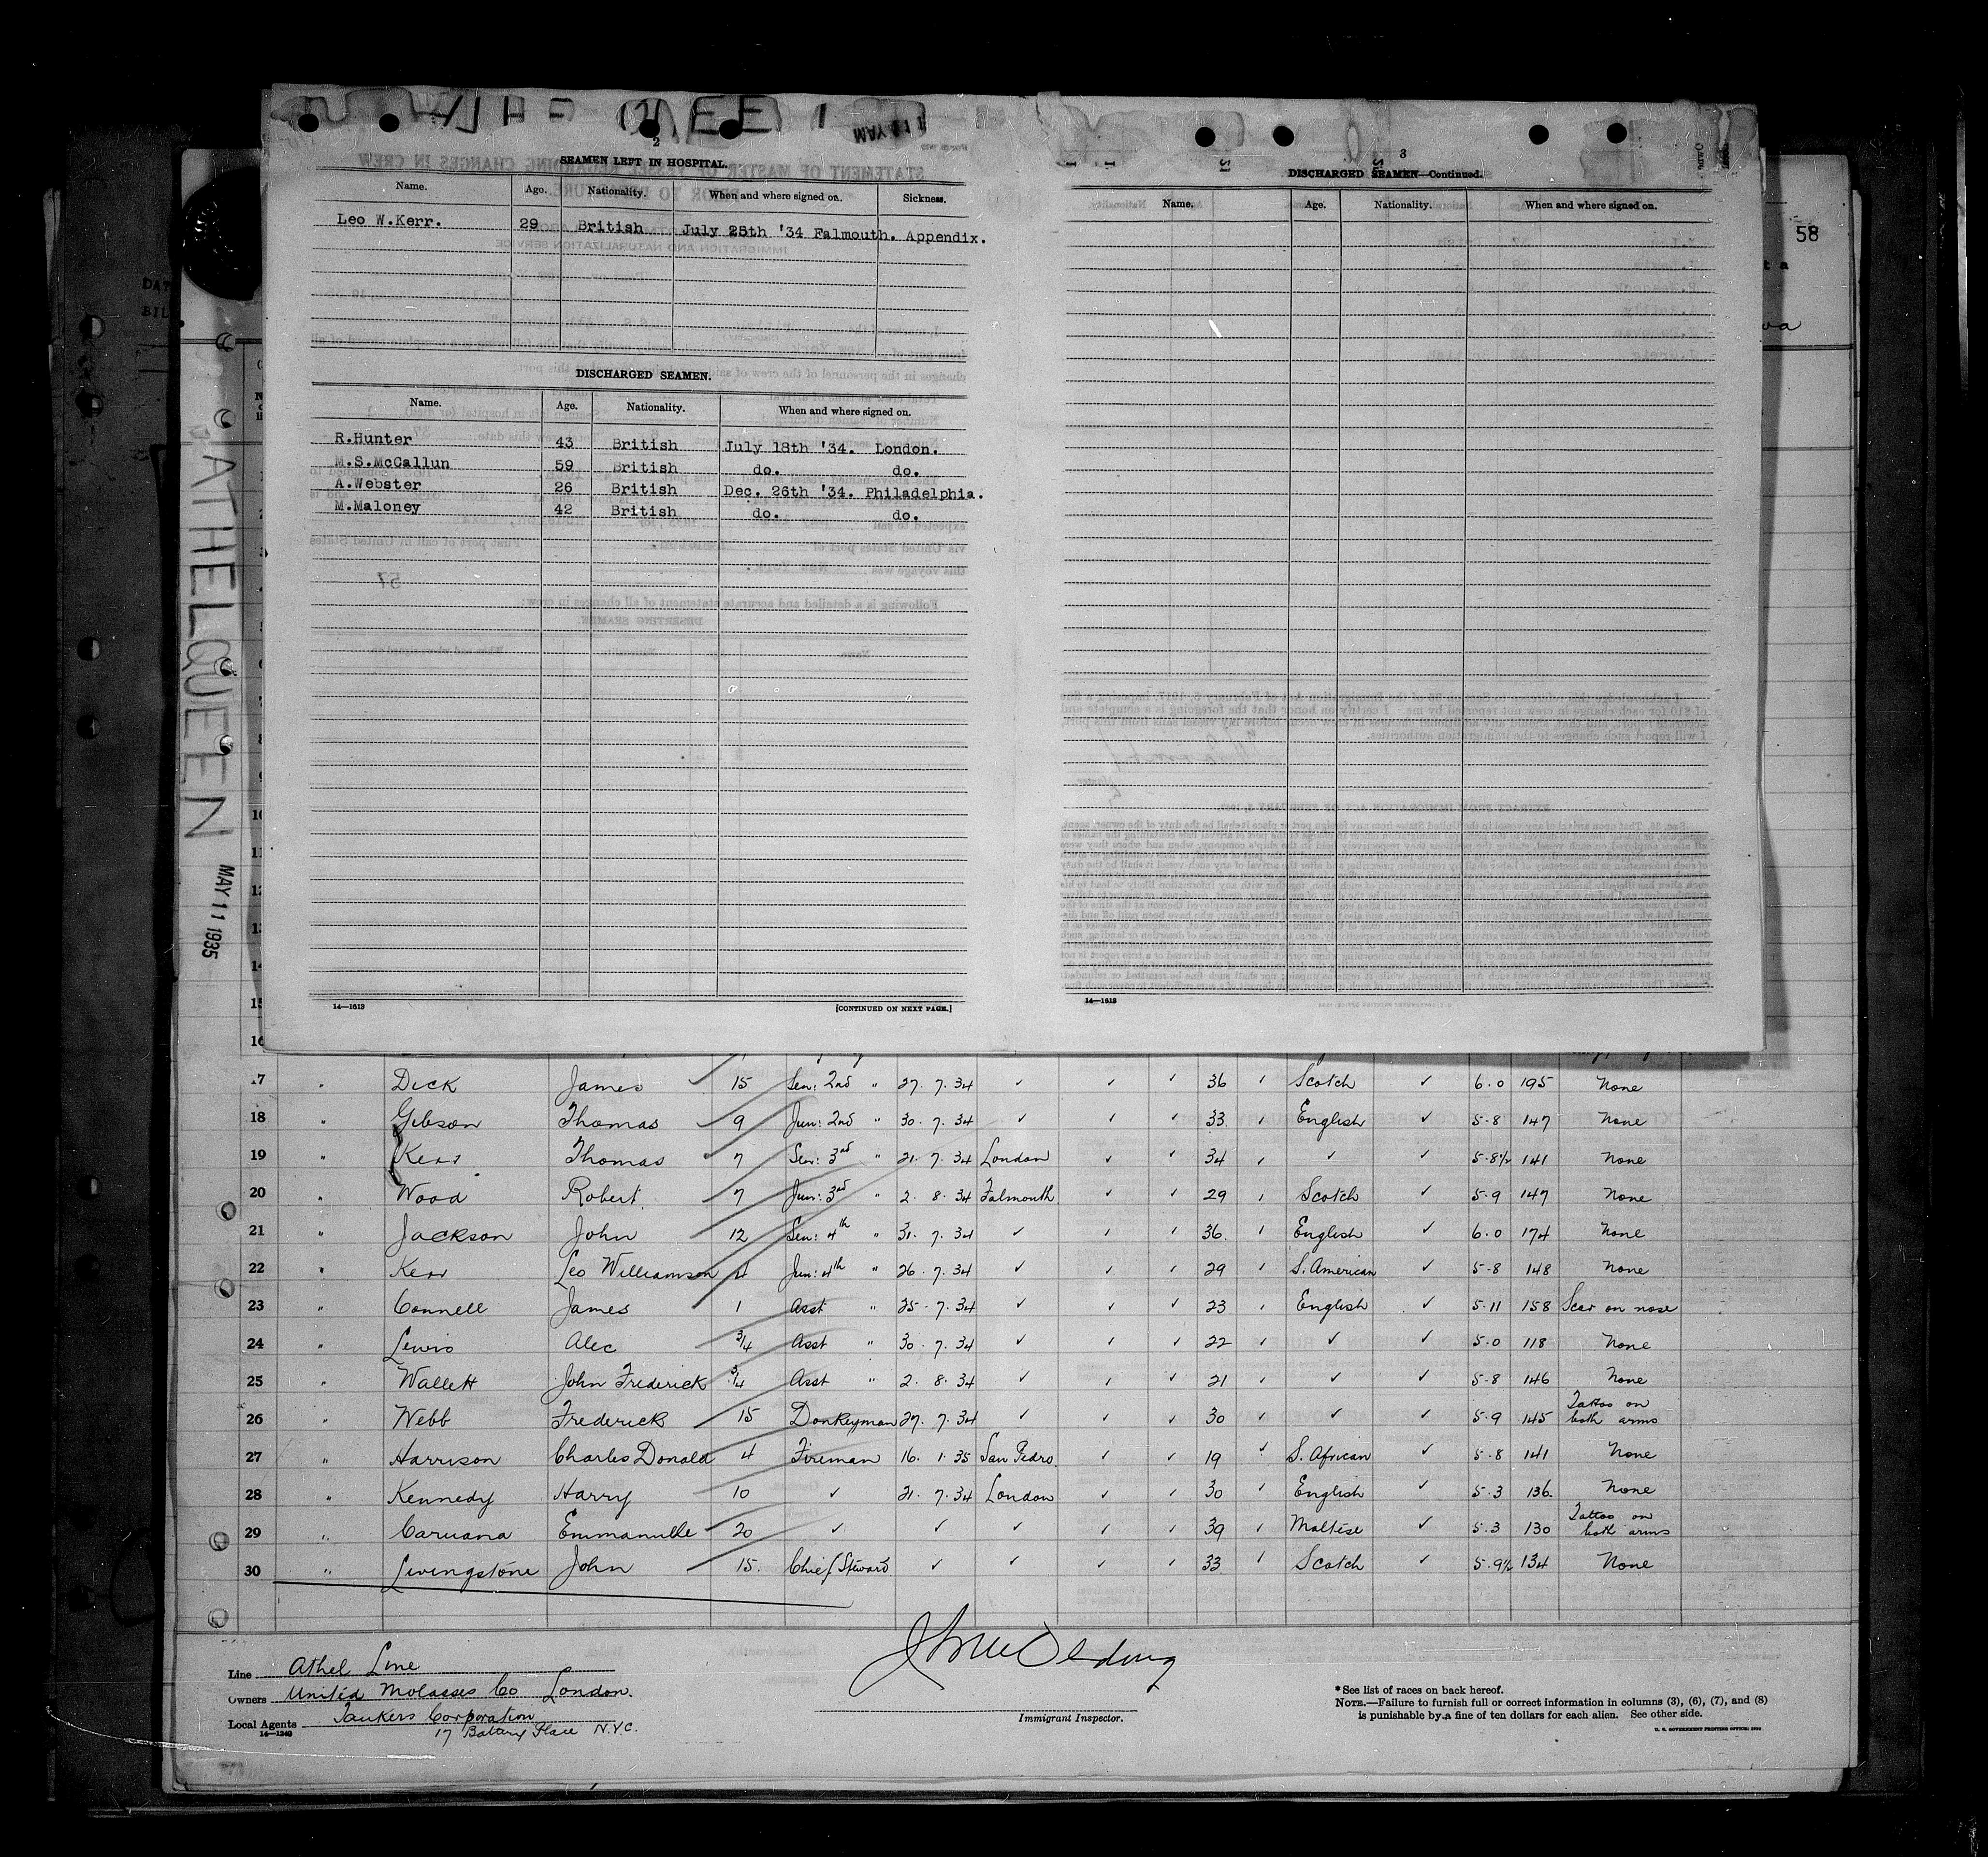 2
SEAMEN LEFT IN HOSPITAL.
Name. Age. Nationality. When and where signed on. Sickness.
Leo W.Kerr. 29 British July 25th '34 Falmouth. Appendix.
DISCHARGED SEAMEN.
Name. Age. Nationality. When and where signed on.
R.Hunter 43 British July 18th '34. London.
M.S.McCallun 59 British do. do.
A.Webster 26 British Dec. 26th '34. Philadelphia.
M.Maloney 42 British do. do.
14—1613 [CONTINUED ON NEXT PAGE.]
3
DISCHARGED SEAMEN—Continued.
Name. Age. Nationality. When and where signed on.
14—1613
58
ATHELQUEEN
MAY 11 1935
10
11
12
13
14
15
16
17 " Dick James ✓ 15 Sen: 2nd " 27. 7. 34 ✓ ✓ ✓ 36 ✓ Scotch ✓ 6.0 195 None
18 " Gibson Thomas ✓ 9 Jun: 2nd " 30. 7. 34 ✓ ✓ ✓ 33. ✓ English ✓ 5-8 147 None
19 " Kerr Thomas ✓ 7 Sen: 3rd " 21. 7. 34 London ✓ ✓ 34 ✓ ✓ ✓ 5-8½ 141 None
20 " Wood Robert ✓ 7 Jun: 3rd " 2. 8. 34 Falmouth ✓ ✓ 29 ✓ Scotch ✓ 5-9 147 None
21 " Jackson John 12 Sen: 4th " 31. 7. 34 ✓ ✓ ✓ 36. ✓ English ✓ 6.0 174 None
22 " Kerr Leo Williamson 4 Jun: 4th " 26. 7. 34 ✓ ✓ ✓ 29 ✓ S. American ✓ 5-8 148 None
23 " Connell James 1 Asst " 25. 7. 34 ✓ ✓ ✓ 23 ✓ English ✓ 5-11 158 Scar on nose
24 " Lewis Alec 3/4 Asst " 30. 7. 34 ✓ ✓ ✓ 22 ✓ ✓ ✓ 5-0 118 None
25 " Wallett John Frederick 3/4 Asst " 2. 8. 34 ✓ ✓ ✓ 21 ✓ ✓ ✓ 5-8 146 None
26 " Webb Frederick ✓ 15 Donkeyman 27. 7. 34 ✓ ✓ ✓ 30 ✓ ✓ ✓ 5-9 145 Tattoo on both arms
27 " Harrison Charles Donald 4 Fireman 16. 1. 35 San Pedro. ✓ ✓ 19 ✓ S. African ✓ 5-8 141 None
28 " Kennedy Harry 10 ✓ 21. 7. 34 London ✓ ✓ 30 ✓ English ✓ 5.3 136. None
29 " Caruana Emmanuelle 20 ✓ ✓ ✓ ✓ ✓ 39 ✓ Maltese ✓ 5.3 130 Tattoo on both arms
30 " Livingstone John 15. Chief Steward ✓ ✓ ✓ ✓ 33 ✓ Scotch ✓ 5.9½ 134 None
Line Athel Line
Owners United Molasses Co London.
Local Agents Tankers Corporation
14—1240 17 Battery Place N.Y.C.
Immigrant Inspector.
*See list of races on back hereof.
NOTE.—Failure to furnish full or correct information in columns (3), (6), (7), and (8)
is punishable by a fine of ten dollars for each alien. See other side.